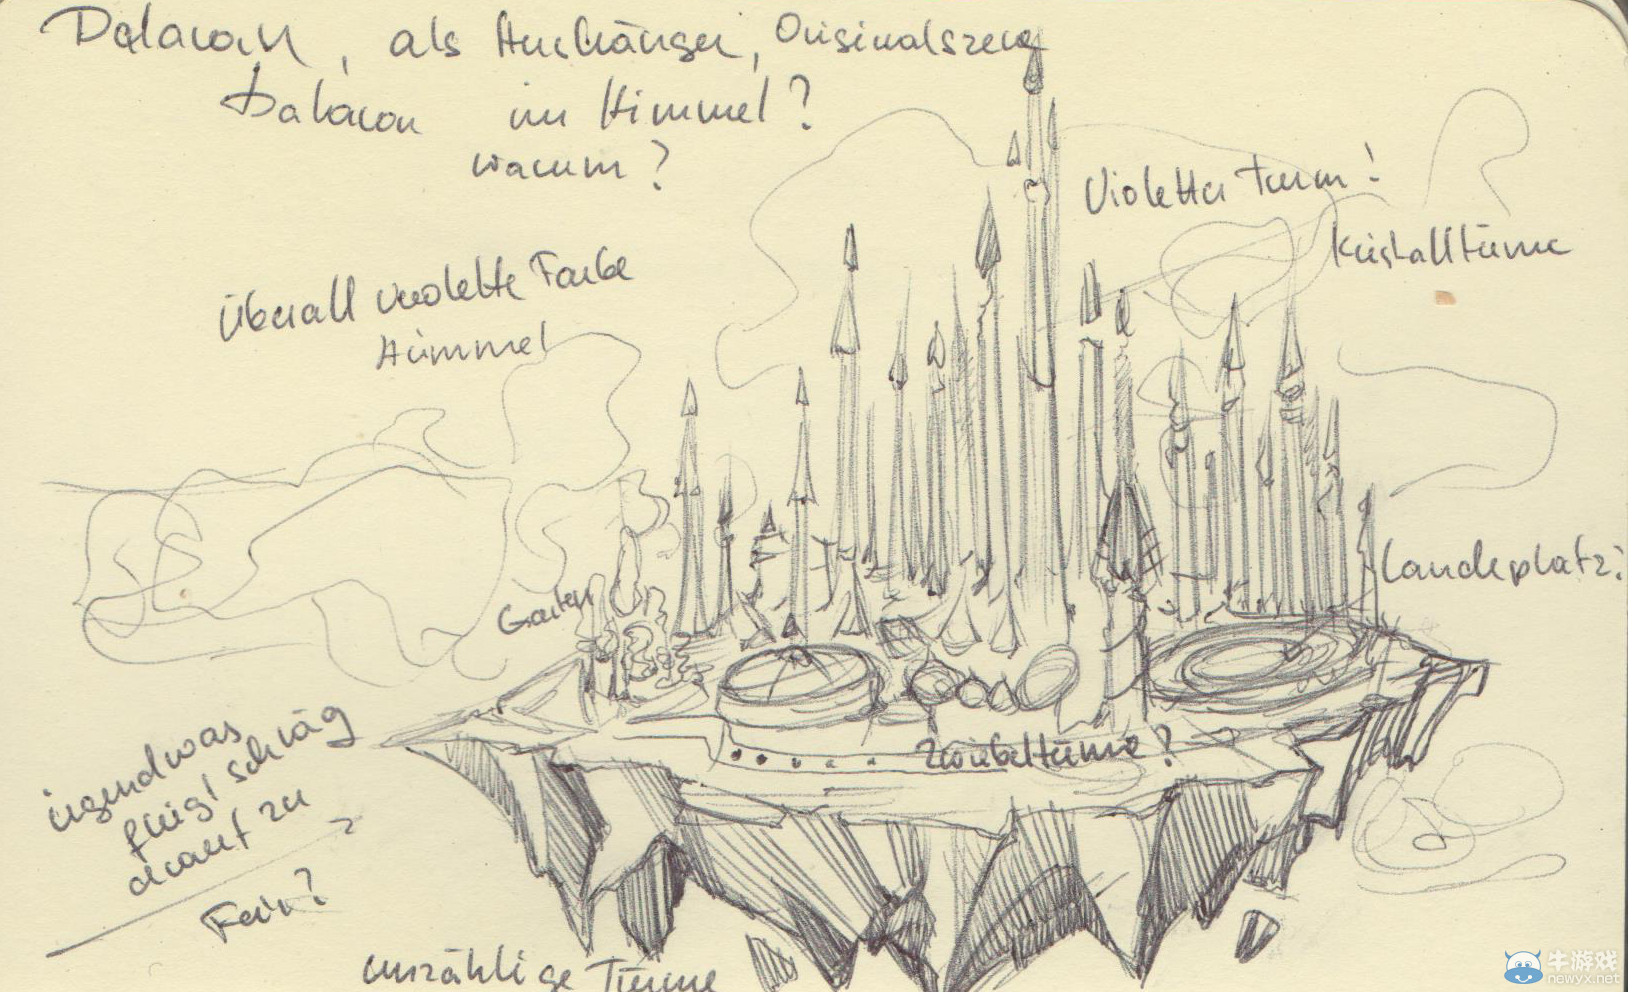 Dalaran, als Anhänger, Originalszene
Dalaran im Himmel?
warum?
Violetter Turm!
Kristalltürme
Überall violette Farbe
Himmel
Landeplatz?
Garten
Zwiebeltürme?
irgendwas
fliegt schräg
drauf zu
unzählige Türme
牛游戏
newyx.net